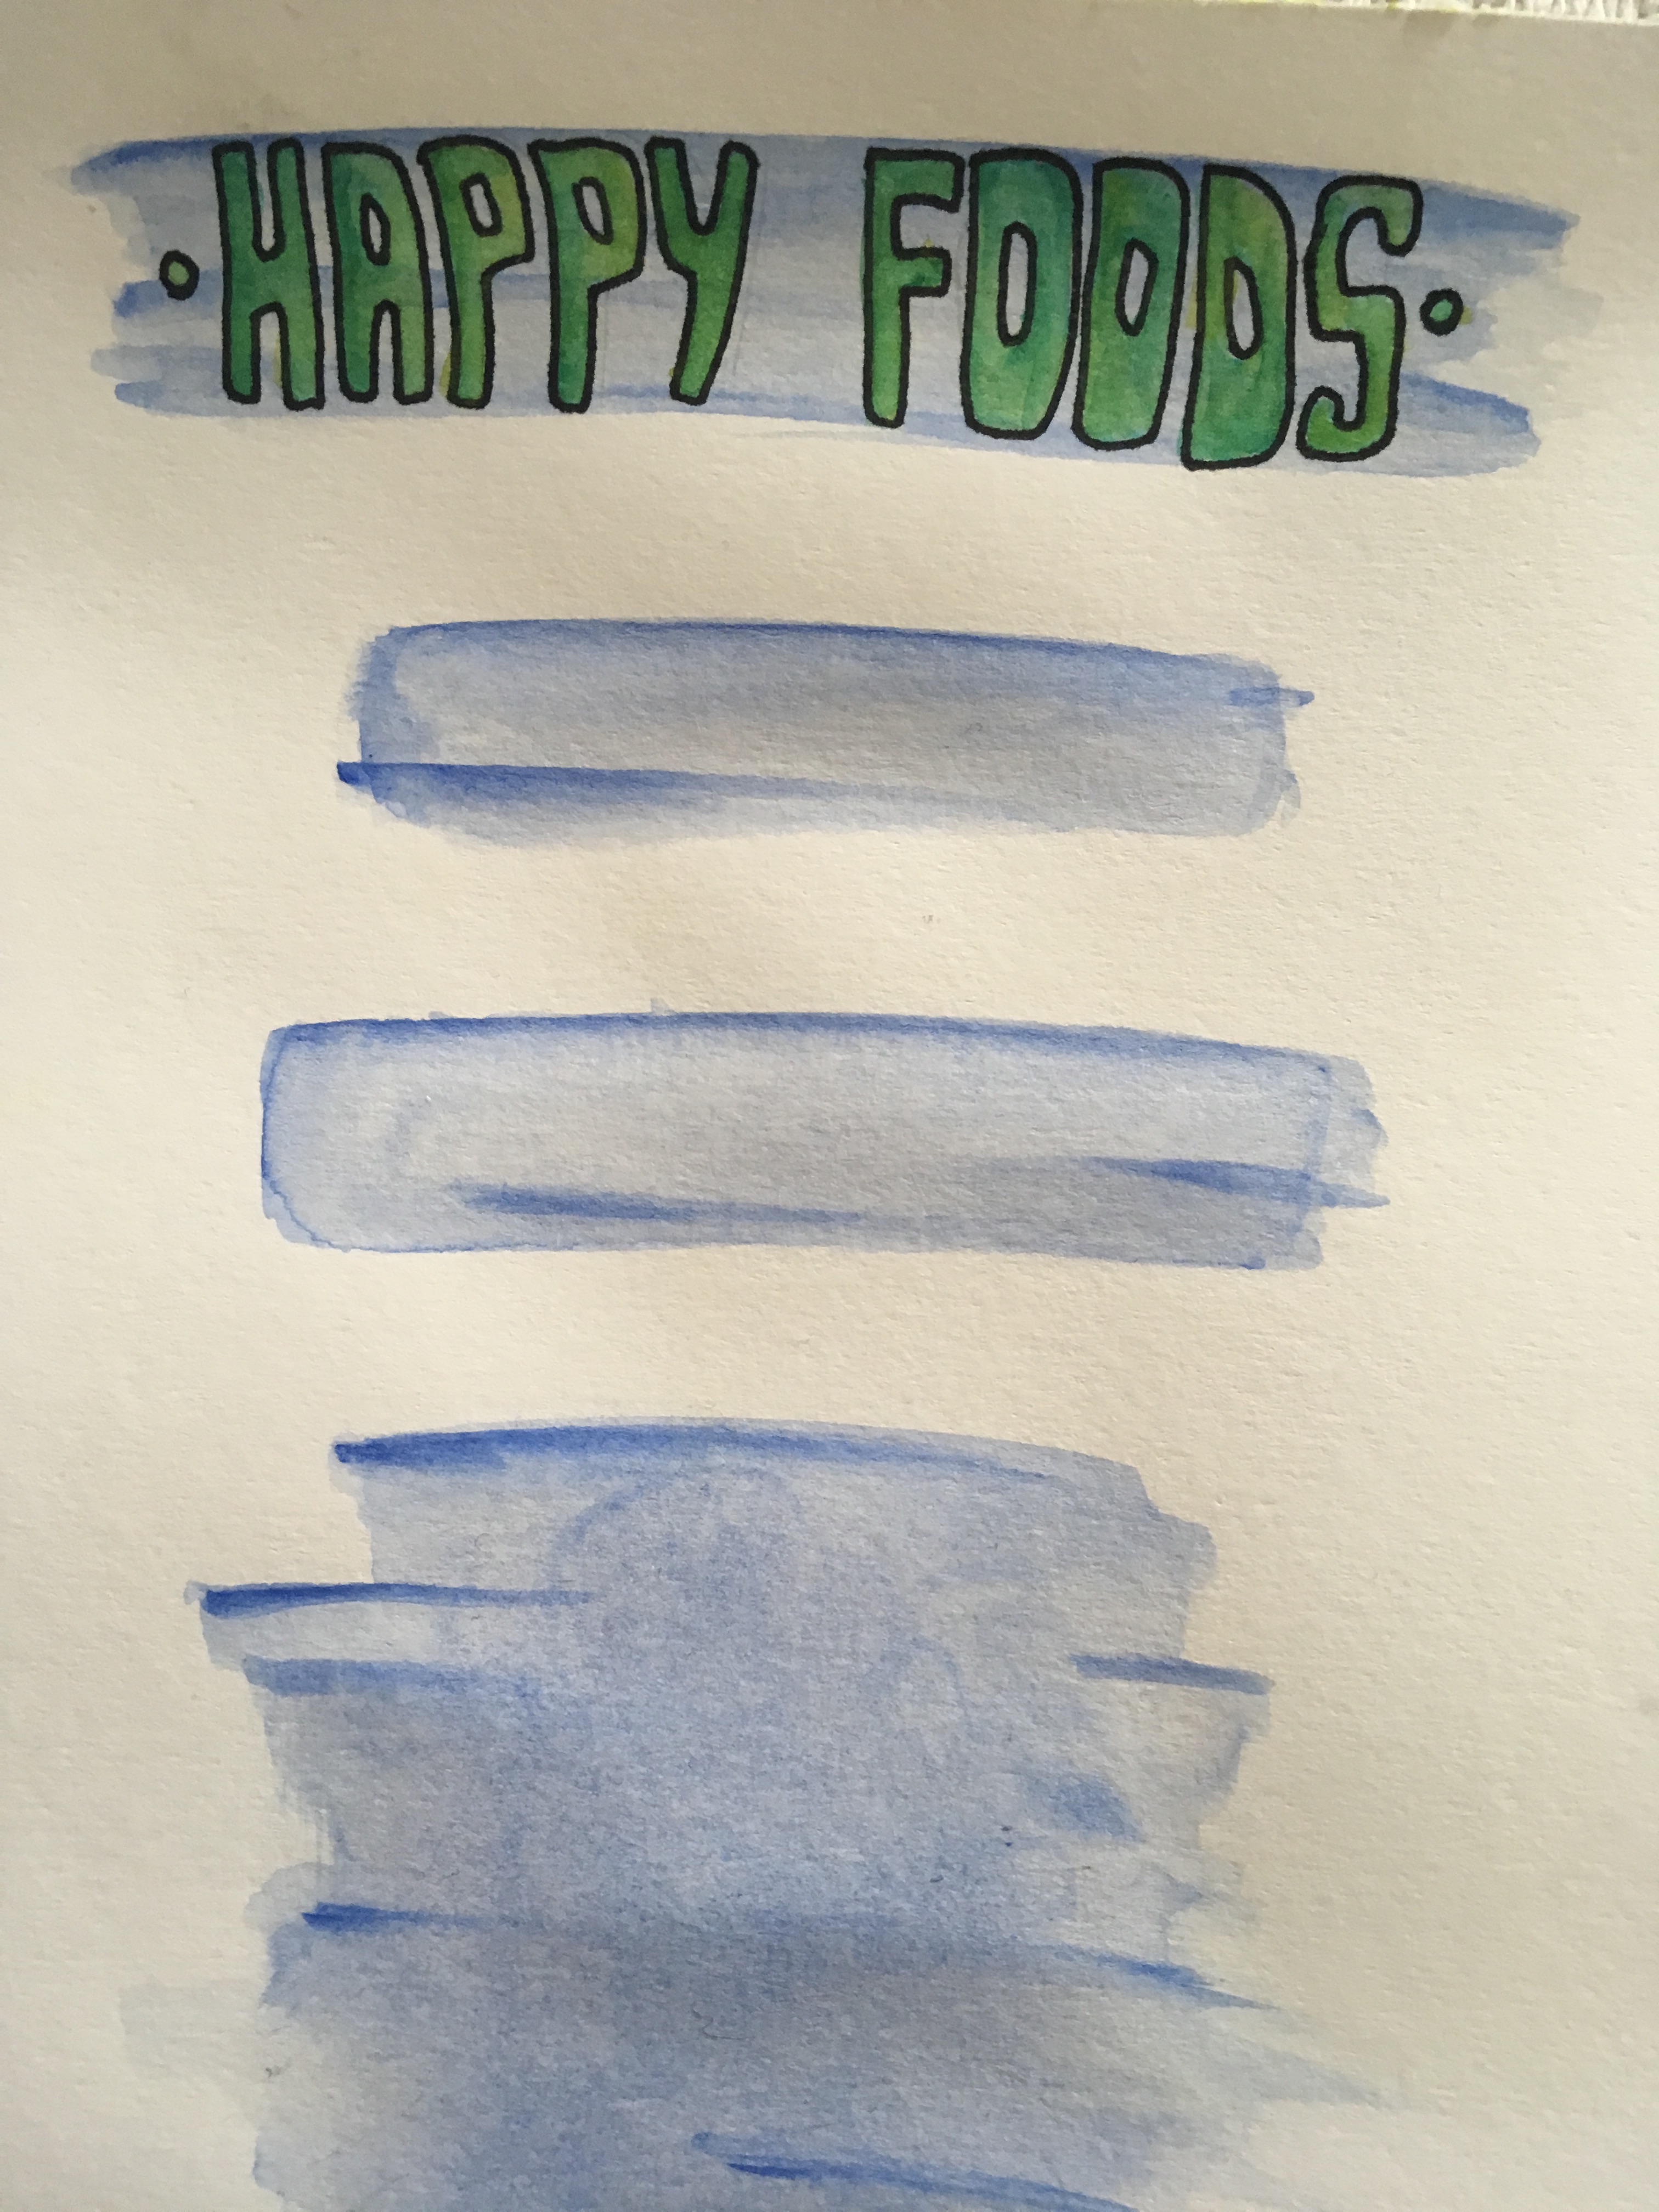 ·HAPPY FOODS·